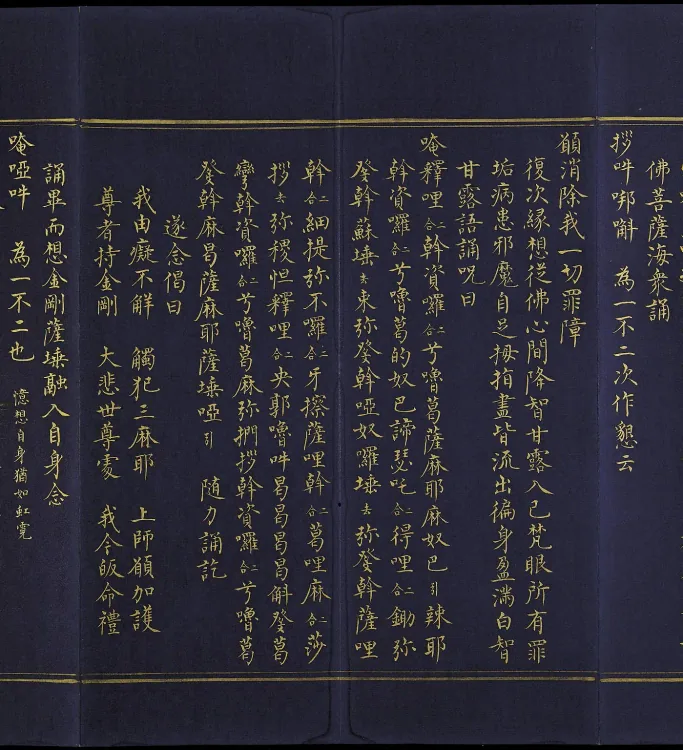 佛菩薩海衆誦
拶吽㖮斛　為一不二次作懇云
願消除我一切罪障
復次緣想從佛心間降智甘露入己梵眼所有罪
垢病患邪魔自足拇指盡皆流出徧身盈滿白智
甘露語誦呪曰
唵釋哩合二幹資囉合二兮嚕葛薩麻耶麻奴巴引辣耶
幹資囉合二兮嚕葛的奴巴諦瑟吒合二得哩合二鋤弥
癹幹蘇埵去束弥癹幹啞奴囉埵去弥癹幹薩哩
幹合二細提弥不囉合二牙擦薩哩幹合二葛哩麻合二莎
拶去弥稷怛釋哩合二央郭嚕吽曷曷曷曷斛癹葛
彎幹資囉合二兮嚕葛麻弥捫拶幹資囉合二兮嚕葛
癹幹麻曷薩麻耶薩埵啞引　隨力誦訖
遂念偈曰
我由癡不解　觸犯三麻耶　上師願加護
尊者持金剛　大悲世尊䨥　我今皈命禮
誦畢而想金剛薩埵融入自身念
唵啞吽　為一不二也　憶想自身猶如虹霓